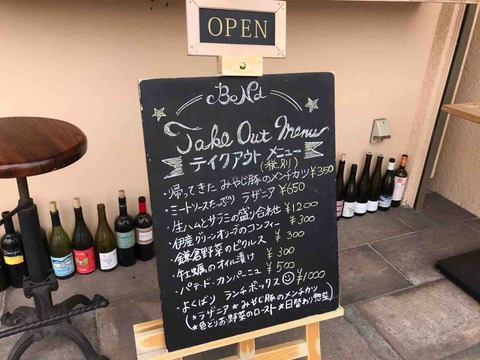 OPEN
BoNd
Take Out Menu
テイクアウト メニュー
(税別)
・帰ってきた みやじ豚のメンチカツ ¥350
・ミートソースたっぷり ラザニア ¥650
・生ハムとサラミの盛り合わせ ¥1200
・伊産グリーンオリーブのコンフィー ¥300
・鎌倉野菜のピクルス ¥300
・牡蠣のオイル漬け ¥300
・パテ・ド・カンパーニュ ¥500
・よくばり ランチボックス ¥1000
(*ラザニア *みやじ豚のメンチカツ
*色どりお野菜のロースト *日替わり惣菜)